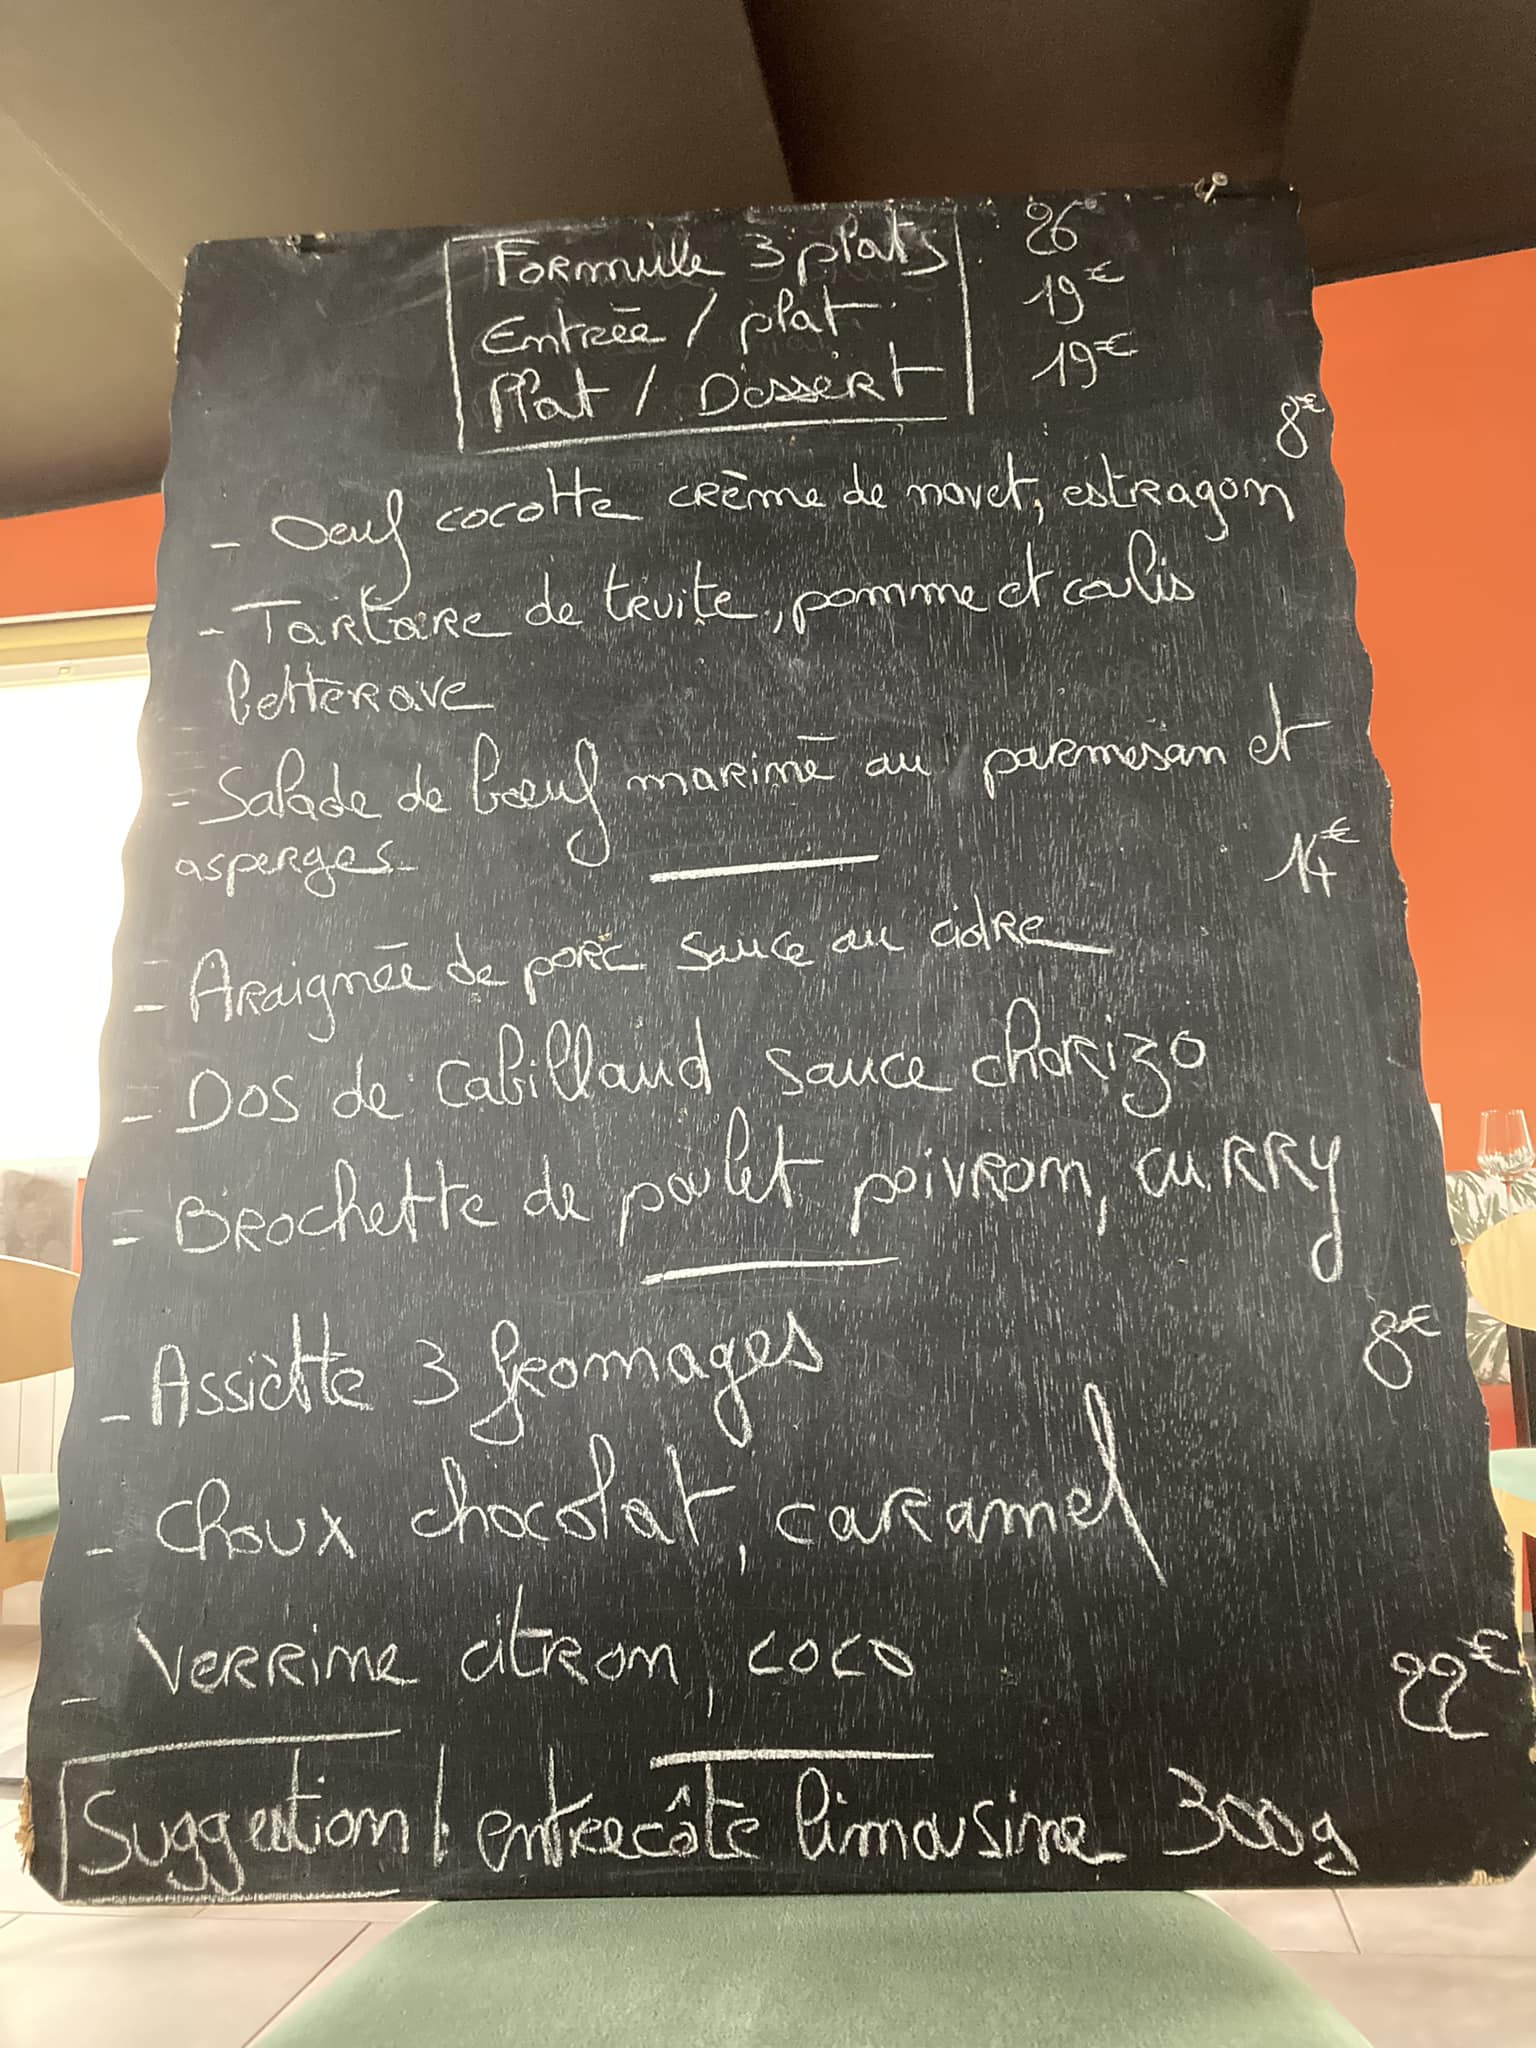 Formule 3 plats 26
Entrée / plat 19€
Plat / Dessert 19€
8€
- Oeuf cocotte crème de navet, estragon
- Tartare de truite, pomme et coulis
betterave
- Salade de bœuf mariné au parmesan et
asperges
14€
- Araignée de porc sauce au cidre
- Dos de Cabillaud sauce chorizo
- Brochette de poulet poivron, curry
8€
- Assiette 3 fromages
- Choux chocolat, caramel
- Verrine citron, coco
22€
Suggestion entrecôte limousine 300g